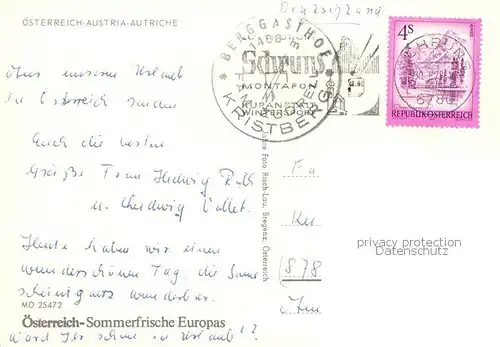 ÖSTERREICH-AUSTRIA-AUTRICHE
Deutschland
* BERGGASTHOF *
1486 m
Schruns
MONTAFON
KURANSTALT
WINTERSPORT
KRISTBERG
4S
SCHRUNS
6780
REPUBLIK ÖSTERREICH
Aus unserem Urlaub
in Österreich senden
Euch die besten
Grüße Frau Hedwig
u.
Heute haben wir einen
wunderschönen Tag die Sonne
scheint ganz wunderbar.
MO 25472
Österreich-Sommerfrische Europas
Ward Ihr schon in Urlaub??
Foto Risch-Lau, Bregenz, Österreich
Fa
878
privacy protection
Datenschutz